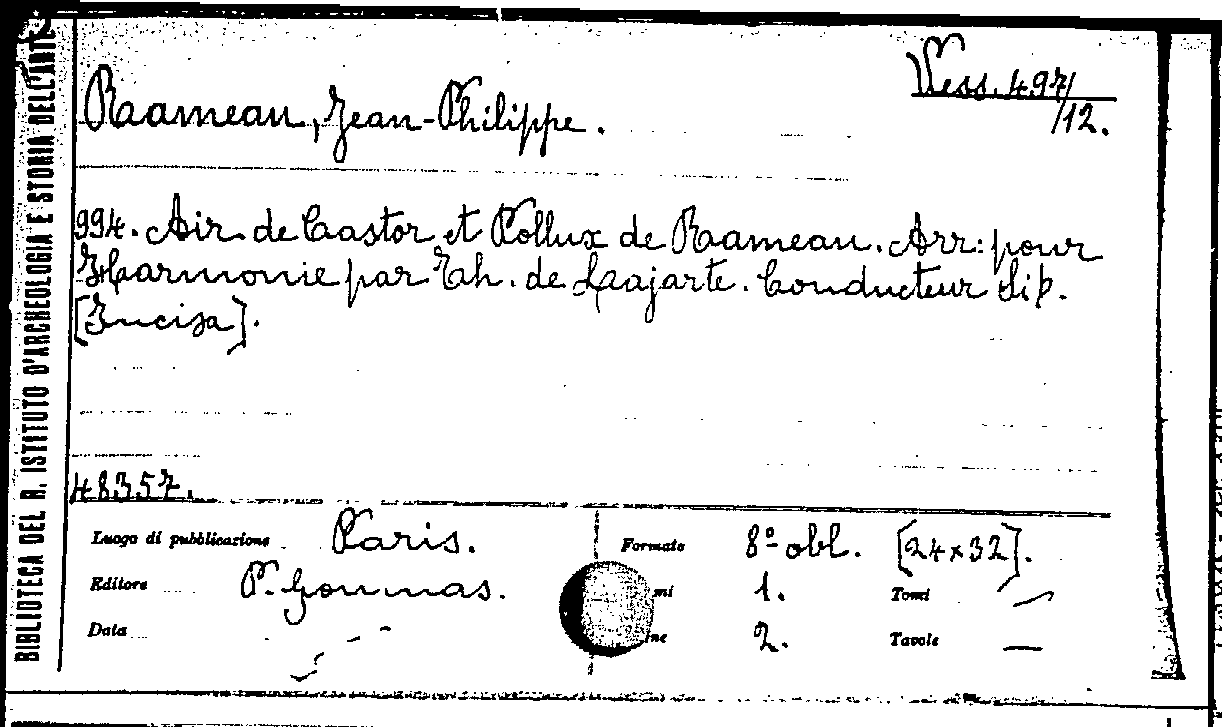 BIBLIOTECA DEL R. ISTITUTO D'ARCHEOLOGIA E STORIA DELL'ARTE
Vess. 497/
/12.
Rameau, Jean-Philippe.
994. Air de Castor et Pollux de Rameau. Arr: pour
Harmonie par Th. de Lajarte. Conducteur Sib.
[Incisa].
48357.
Luogo di pubblicazione Paris. Formato 8º obl. [24x32].
Editore P. Goumas. mi 1. Tomi —
Data ne 2. Tavole —